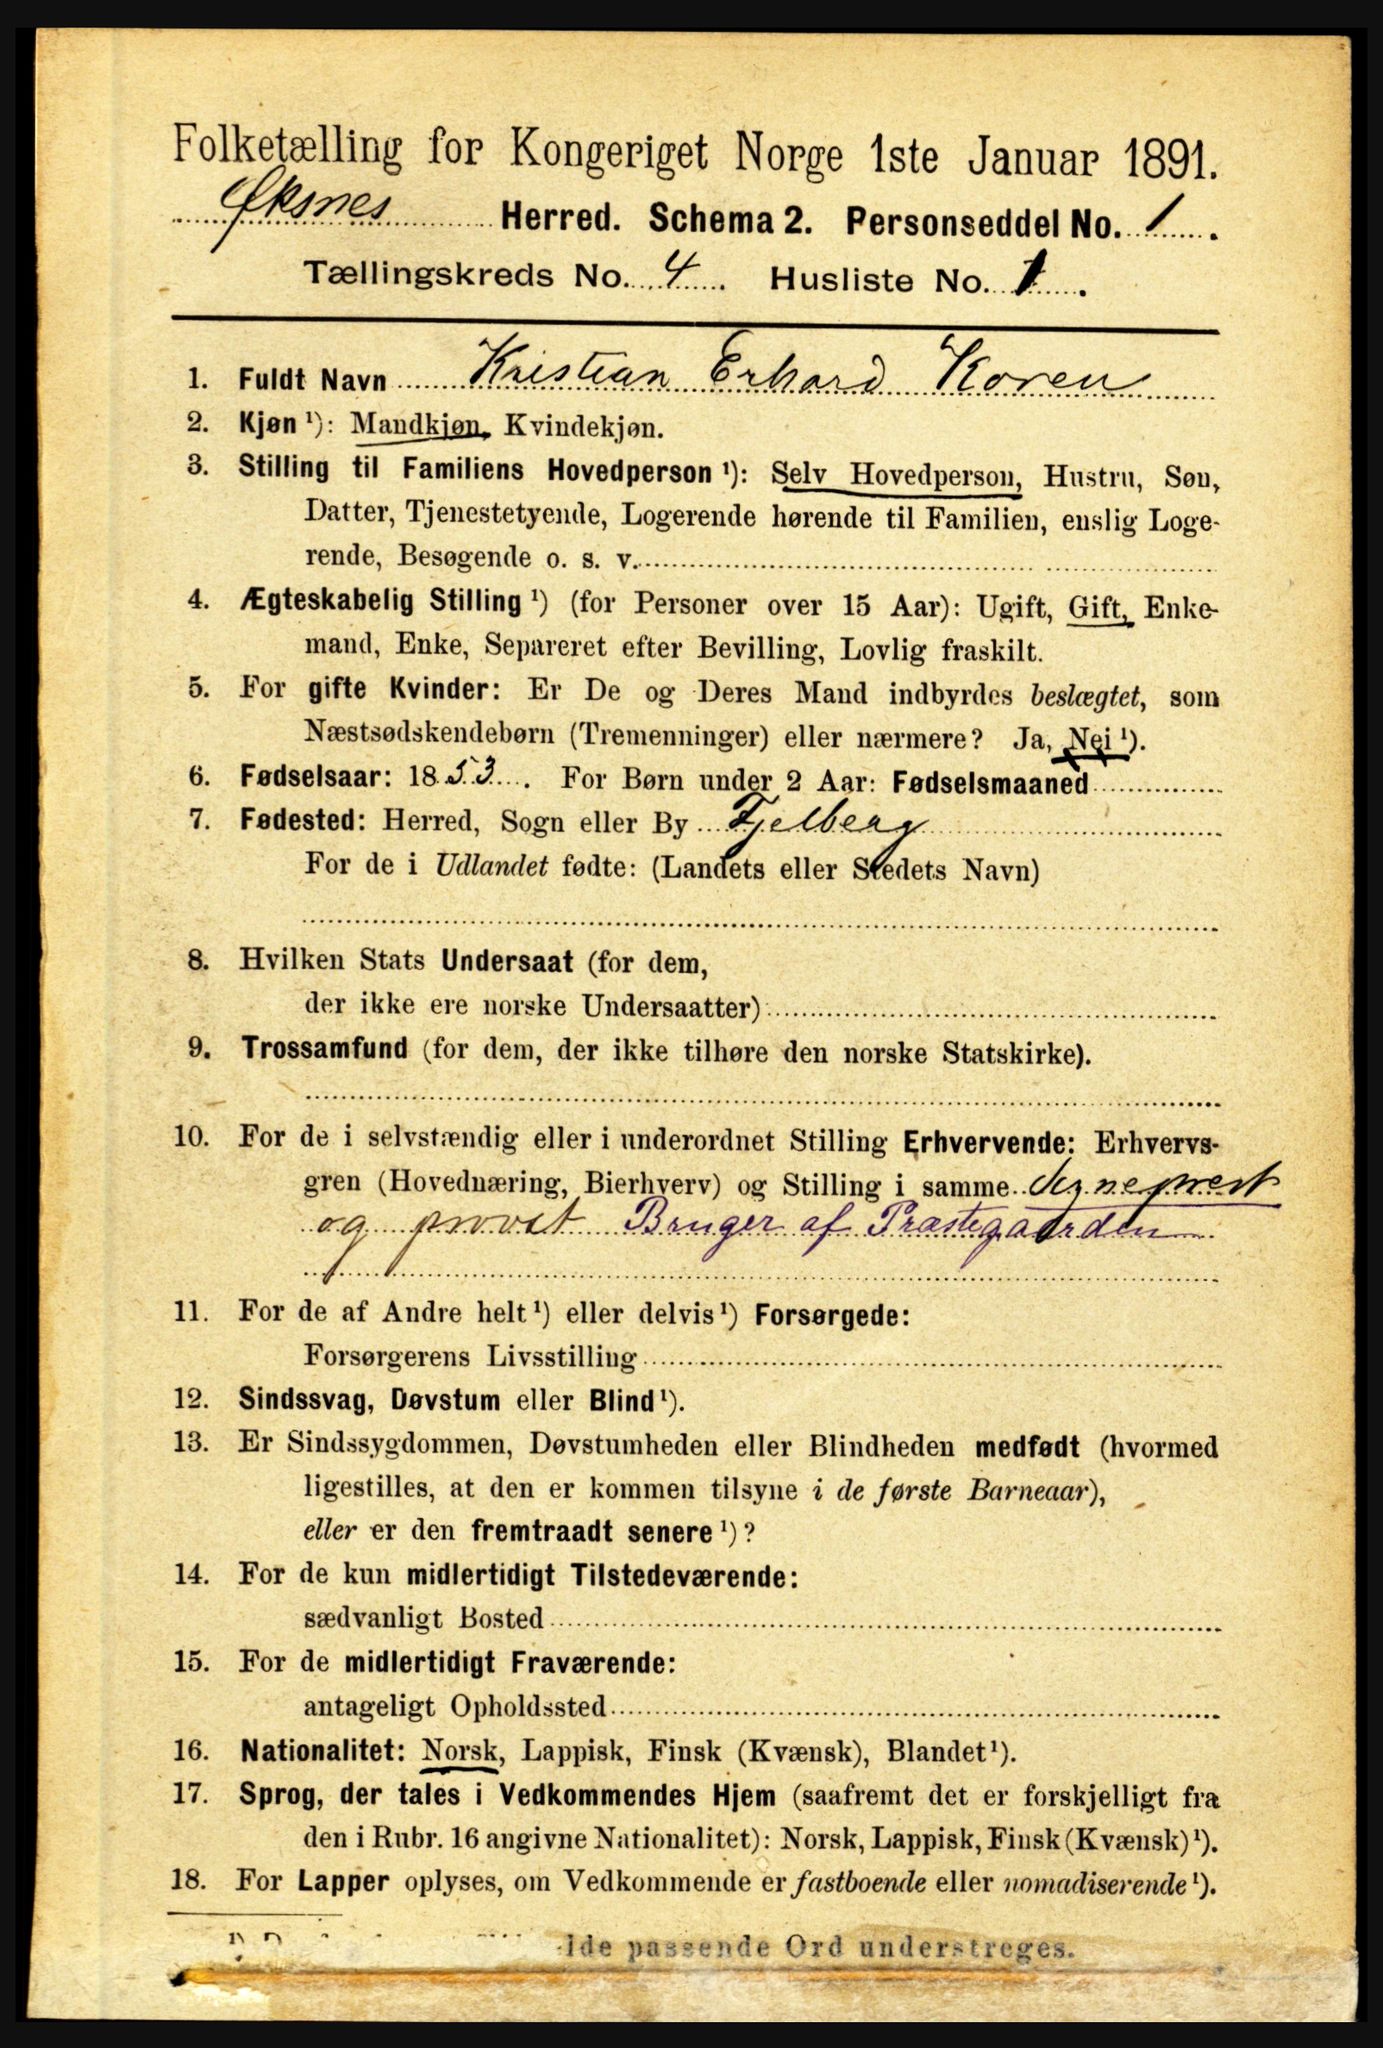 Folketælling for Kongeriget Norge 1ste Januar 1891.
Øksnes Herred. Schema 2. Personseddel No. 1.
Tællingskreds No. 4. Husliste No. 1.
1. Fuldt Navn Kristian Erhard Koren
2. Kjøn ¹): Mandkjøn, Kvindekjøn.
3. Stilling til Familiens Hovedperson ¹): Selv Hovedperson, Hustru, Søn,
Datter, Tjenestetyende, Logerende hørende til Familien, enslig Loge-
rende, Besøgende o. s. v.
4. Ægteskabelig Stilling ¹) (for Personer over 15 Aar): Ugift, Gift, Enke-
mand, Enke, Separeret efter Bevilling, Lovlig fraskilt.
5. For gifte Kvinder: Er De og Deres Mand indbyrdes beslægtet, som
Næstsødskendebørn (Tremenninger) eller nærmere? Ja, Nei ¹).
6. Fødselsaar: 1853. For Børn under 2 Aar: Fødselsmaaned
7. Fødested: Herred, Sogn eller By Fjelberg
For de i Udlandet fødte: (Landets eller Stedets Navn)
8. Hvilken Stats Undersaat (for dem,
der ikke ere norske Undersaatter)
9. Trossamfund (for dem, der ikke tilhøre den norske Statskirke).
10. For de i selvstændig eller i underordnet Stilling Erhvervende: Erhvervs-
gren (Hovednæring, Bierhverv) og Stilling i samme Sogneprest
og provst Bruger af Præstegaarden
11. For de af Andre helt ¹) eller delvis ¹) Forsørgede:
Forsørgerens Livsstilling
12. Sindssvag, Døvstum eller Blind ¹).
13. Er Sindssygdommen, Døvstumheden eller Blindheden medfødt (hvormed
ligestilles, at den er kommen tilsyne i de første Barneaar),
eller er den fremtraadt senere ¹)?
14. For de kun midlertidigt Tilstedeværende:
sædvanligt Bosted
15. For de midlertidigt Fraværende:
antageligt Opholdssted
16. Nationalitet: Norsk, Lappisk, Finsk (Kvænsk), Blandet ¹).
17. Sprog, der tales i Vedkommendes Hjem (saafremt det er forskjelligt fra
den i Rubr. 16 angivne Nationalitet): Norsk, Lappisk, Finsk (Kvænsk) ¹).
18. For Lapper oplyses, om Vedkommende er fastboende eller nomadiserende ¹).
passende Ord understreges.